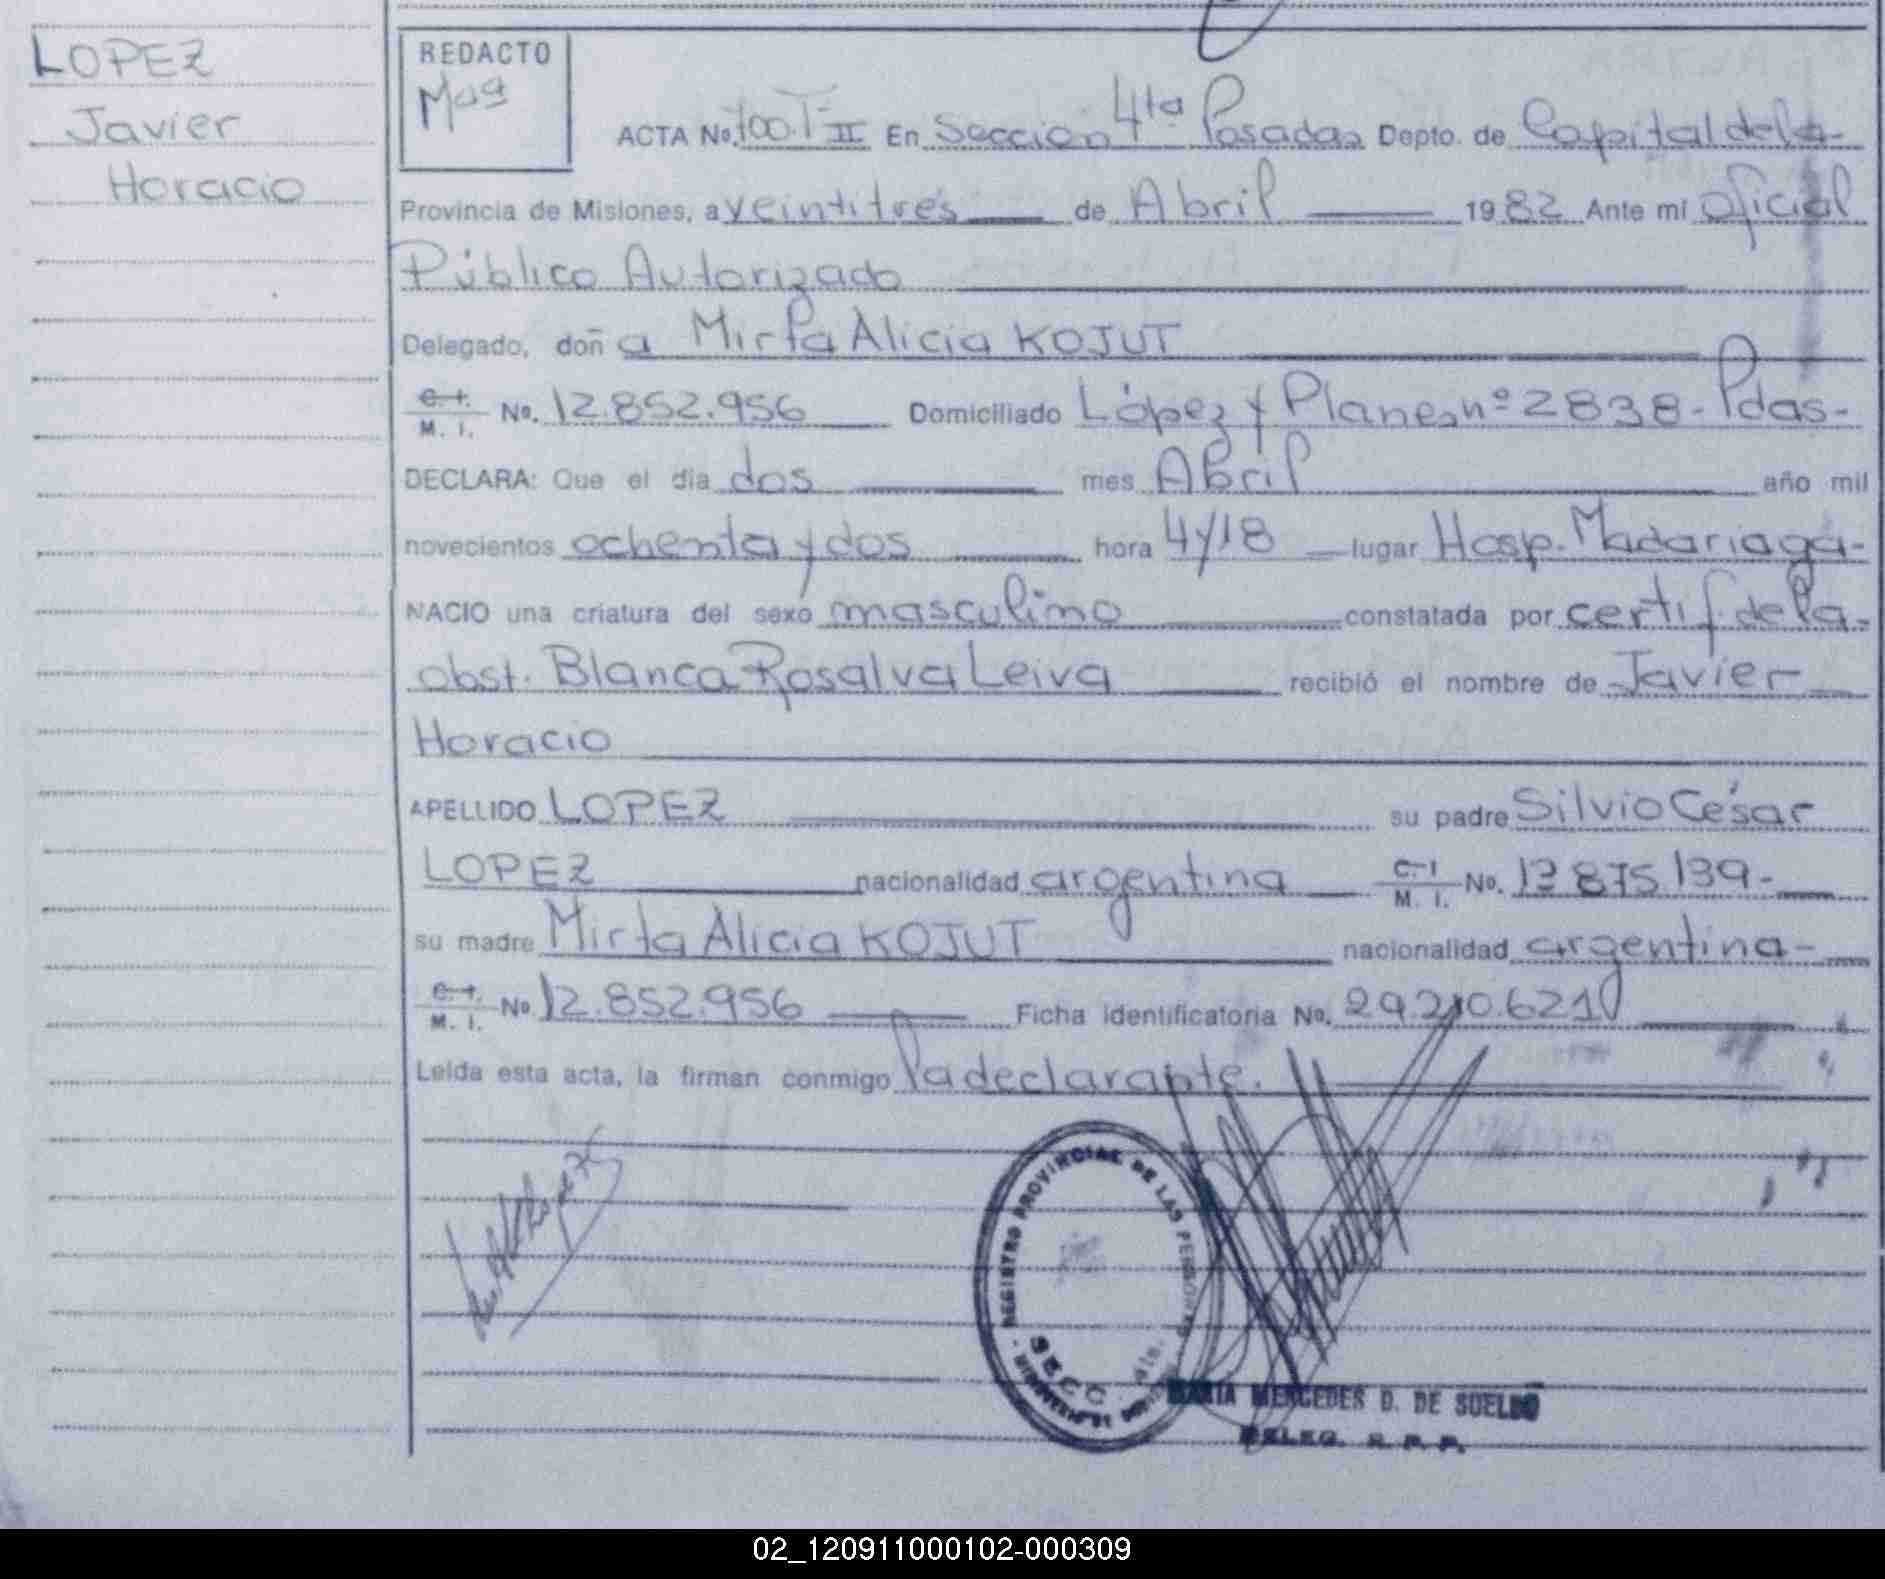 LOPEZ
Javier
Horacio
REDACTO
Mag
ACTA No. 100 T II En Sección 4ta Posadas Depto. de Capital de la
Provincia de Misiones, a veintitres de Abril 1982 Ante mi oficial
Público Autorizado
Delegado, doña Mirta Alicia KOJUT
C.I. M. I. No. 12.852.956 Domiciliado López y Planes nº 2838 - Pdas-
DECLARA: Que el día dos mes Abril año mil
novecientos ochenta y dos hora 4y18 lugar Hosp. Madariaga-
NACIO una criatura del sexo masculino constatada por certif. de la
obst. Blanca Rosalva Leiva recibió el nombre de Javier
Horacio
APELLIDO LOPEZ su padre Silvio César
LOPEZ nacionalidad argentina C.I. M. I. No. 13 875 139-
su madre Mirta Alicia KOJUT nacionalidad argentina-
C.I. M. I. No. 12.852.956 Ficha identificatoria No. 29.210.621
Leída esta acta, la firman conmigo la declarante.
REGISTRO PROVINCIAL DE LAS PERSONAS
SECC. 4ta.
MARIA MERCEDES D. DE SUELDO
DELEG. R. P. P.
02_120911000102-000309